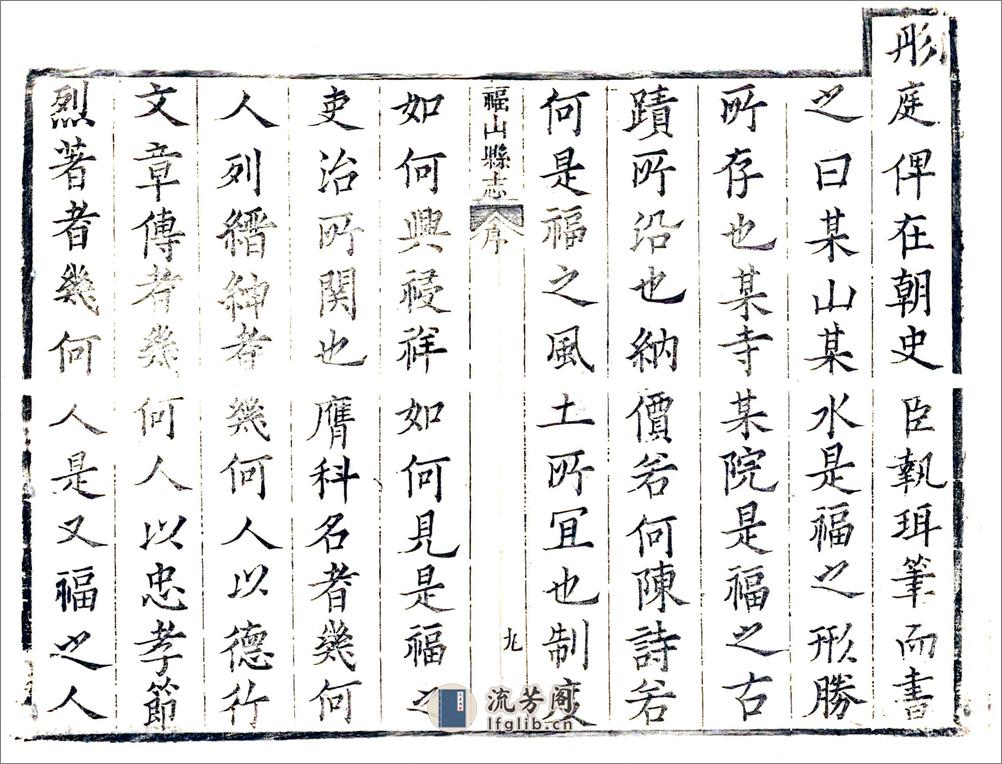 彤庭俾在朝史臣執珥筆而書
之曰某山某水是福之形勝
所存也某寺某院是福之古
蹟所沿也納價若何陳詩若
何是福之風土所宜也制度
福山縣志 序 九
如何興祲祥如何見是福之
吏治所関也膺科名者幾何
人列縉紳者幾何人以德行
文章傳者幾何人以忠孝節
烈著者幾何人是又福之人
流芳阁
lfglib.cn